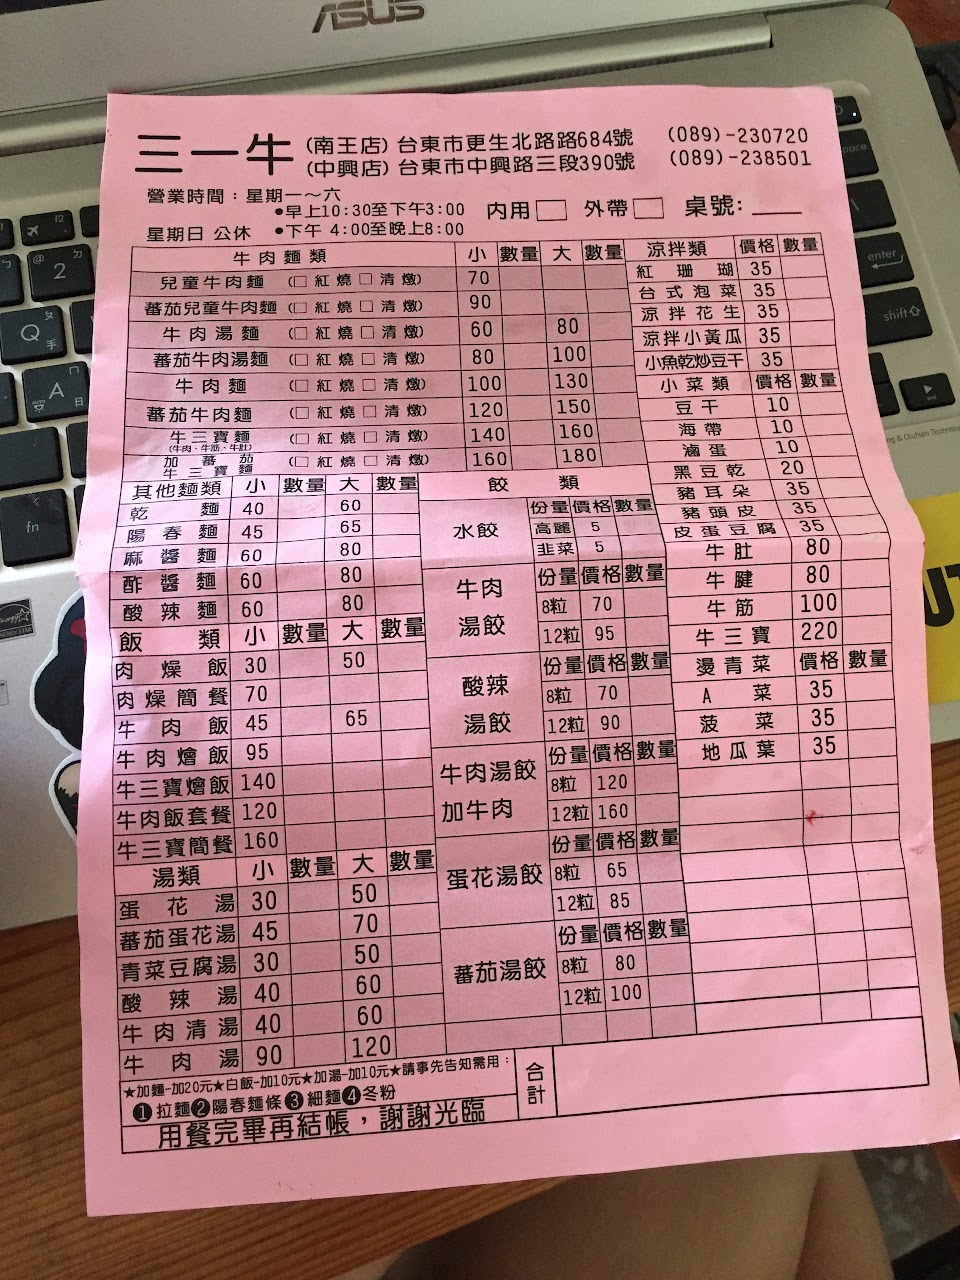 ASUS
三一牛 (南王店) 台東市更生北路路684號 (089)-230720
(中興店) 台東市中興路三段390號 (089)-238501
營業時間：星期一～六
●早上10:30至下午3:00 內用□ 外帶□ 桌號:
星期日 公休 ●下午 4:00至晚上8:00
牛肉麵類 小 數量 大 數量
兒童牛肉麵 (□紅燒□清燉) 70
蕃茄兒童牛肉麵 (□紅燒□清燉) 90
牛肉湯麵 (□紅燒□清燉) 60 80
蕃茄牛肉湯麵 (□紅燒□清燉) 80 100
牛肉麵 (□紅燒□清燉) 100 130
蕃茄牛肉麵 (□紅燒□清燉) 120 150
牛三寶麵 (牛肉、牛筋、牛肚) (□紅燒□清燉) 140 160
加蕃茄
牛三寶麵 (□紅燒□清燉) 160 180
其他麵類 小 數量 大 數量
乾麵 40 60
陽春麵 45 65
麻醬麵 60 80
酢醬麵 60 80
酸辣麵 60 80
飯類 小 數量 大 數量
肉燥飯 30 50
肉燥簡餐 70
牛肉飯 45 65
牛肉燴飯 95
牛三寶燴飯 140
牛肉飯套餐 120
牛三寶簡餐 160
湯類 小 數量 大 數量
蛋花湯 30 50
蕃茄蛋花湯 45 70
青菜豆腐湯 30 50
酸辣湯 40 60
牛肉清湯 40 60
牛肉湯 90 120
餃類
水餃 份量 價格 數量
高麗 5
韭菜 5
牛肉湯餃 份量 價格 數量
8粒 70
12粒 95
酸辣湯餃 份量 價格 數量
8粒 70
12粒 90
牛肉湯餃加牛肉 份量 價格 數量
8粒 120
12粒 160
蛋花湯餃 份量 價格 數量
8粒 65
12粒 85
蕃茄湯餃 份量 價格 數量
8粒 80
12粒 100
涼拌類 價格 數量
紅珊瑚 35
台式泡菜 35
涼拌花生 35
涼拌小黃瓜 35
小魚乾炒豆干 35
小菜類 價格 數量
豆干 10
海帶 10
滷蛋 10
黑豆乾 20
豬耳朵 35
豬頭皮 35
皮蛋豆腐 35
牛肚 80
牛腱 80
牛筋 100
牛三寶 220
燙青菜 價格 數量
A菜 35
菠菜 35
地瓜葉 35
★加麵-加20元★白飯-加10元★加湯-加10元★請事先告知需用：
❶拉麵❷陽春麵條❸細麵❹冬粉
用餐完畢再結帳，謝謝光臨
合計
fn
Q
手
A
日
2
enter
shift
space
& Olufsen Technology
ENERGY STAR
UT